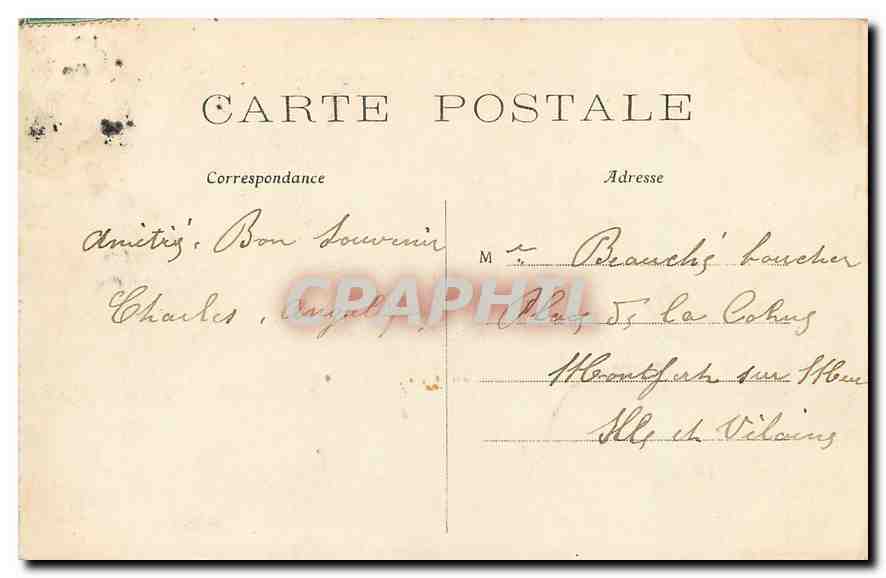 CARTE POSTALE
Correspondance
Adresse
Amitié. Bon Souvenir
Charles,
CPAPHIL
Mr Beauché boucher
Place de la Cohue
Montfort sur Meu
Ille et Vilaine